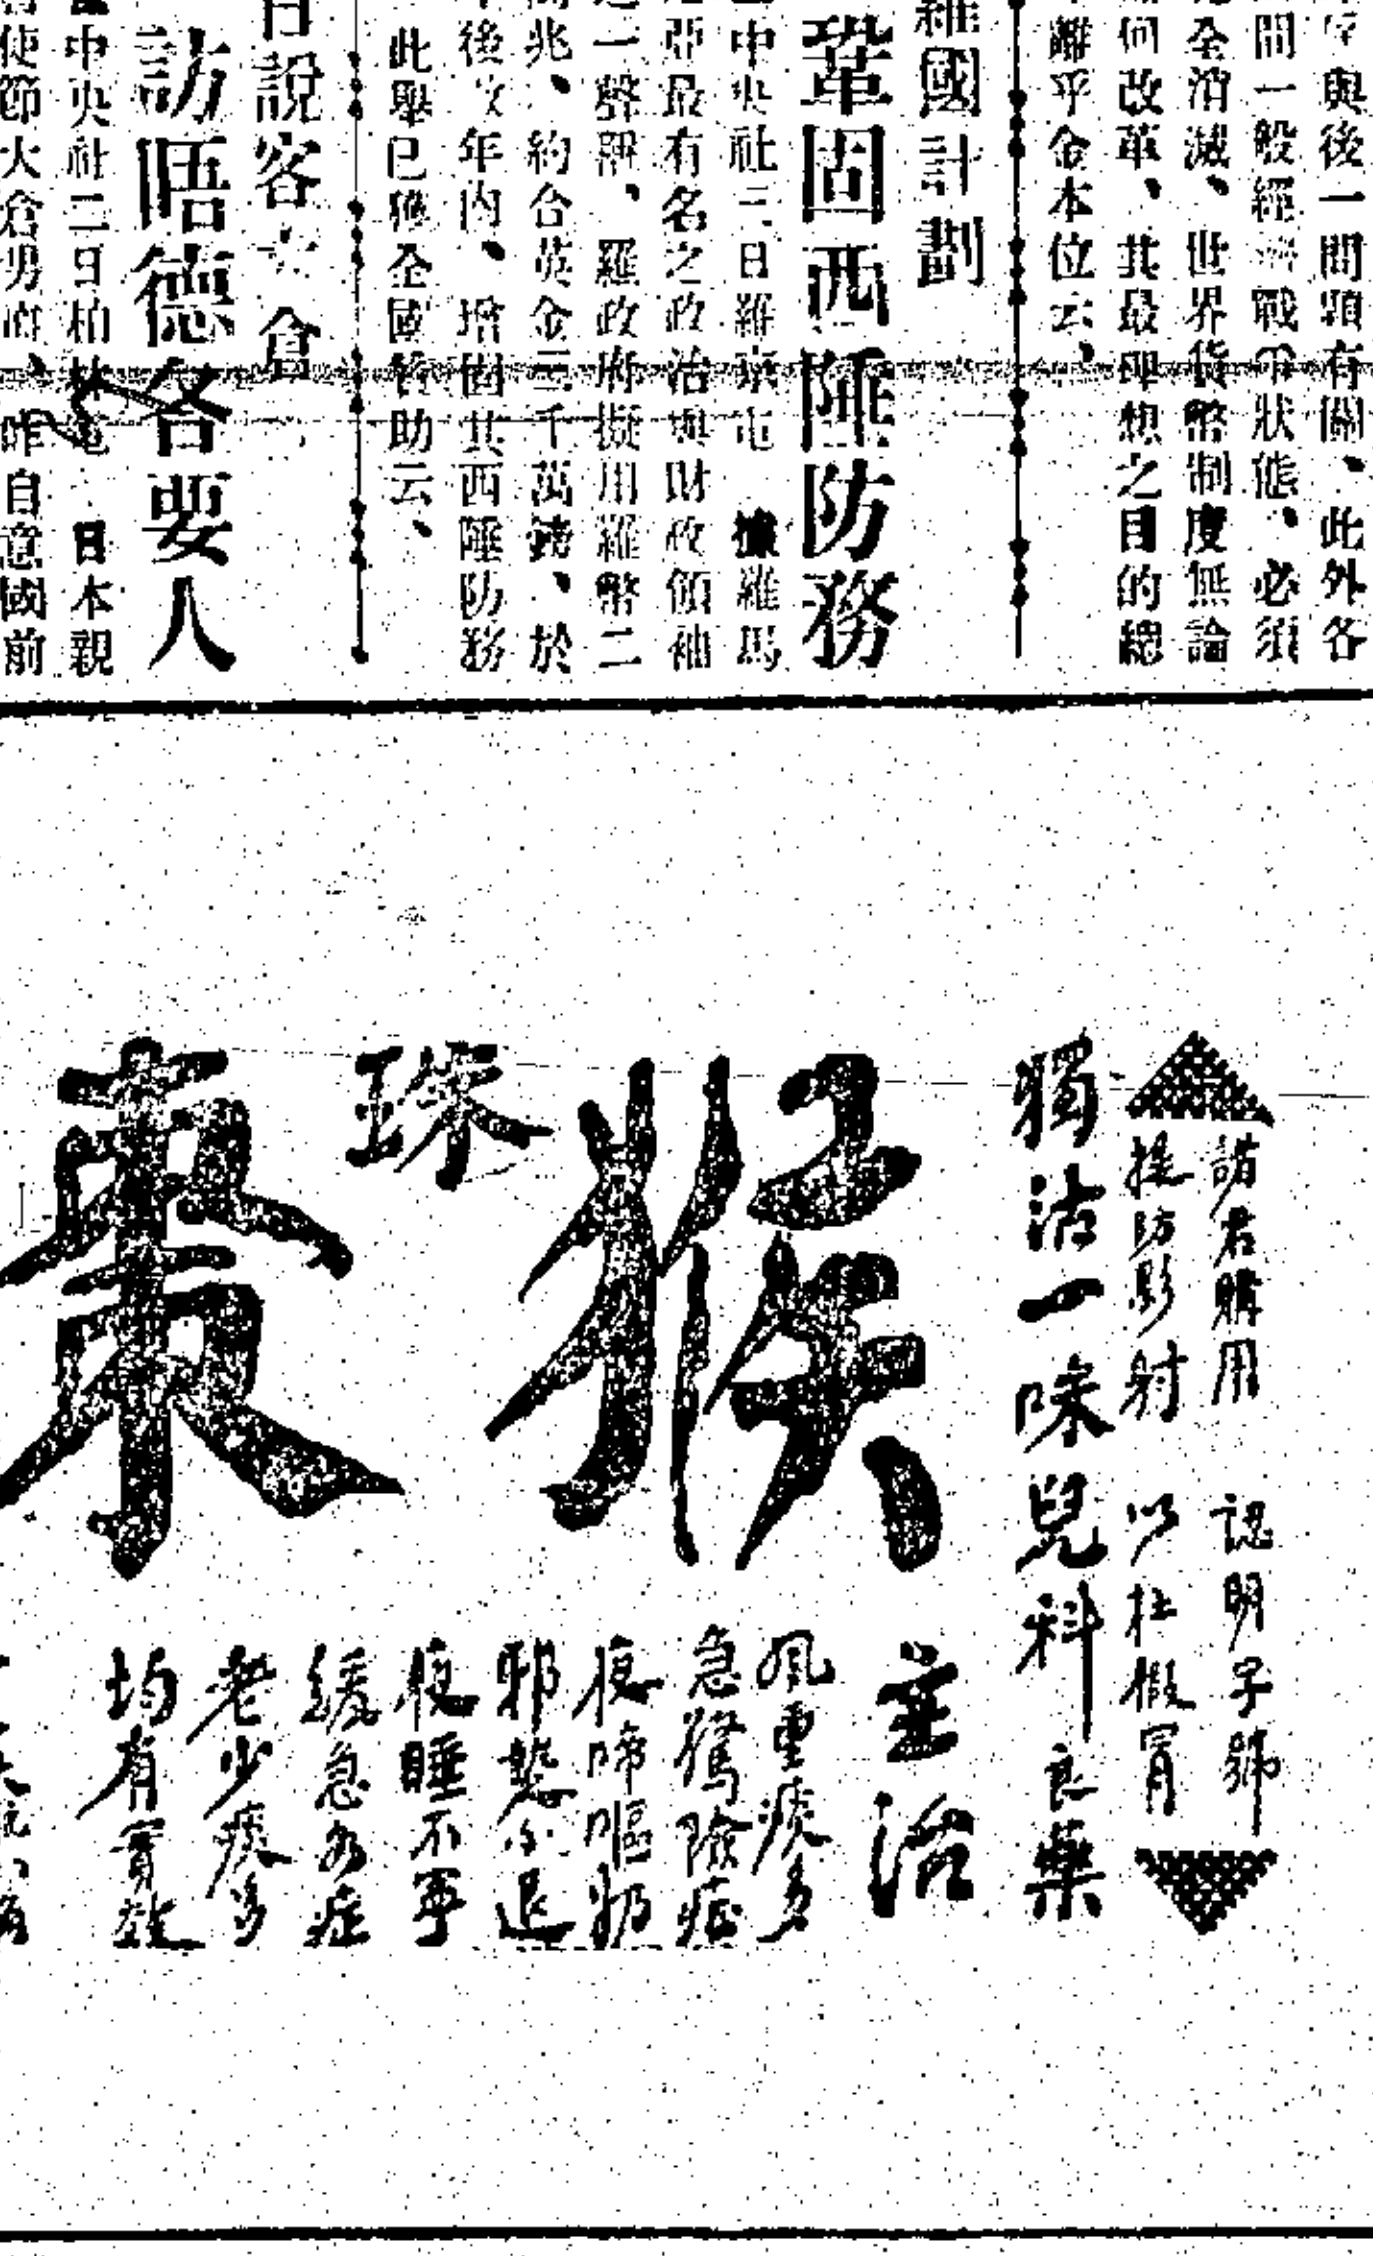 與後一問題有關、此外各
間一般經戰爭狀態、必須
全消滅、世界貨幣制度無論
何改革、其最理想之目的總
離乎金本位云、
羅國計劃
鞏固西陲防務
中央社三日羅京電　據羅馬
亞最有名之政治與財政領袖
一聲稱、羅政府擬用羅幣二
兆、約合英金三千萬鎊、於
後數年內、增固其西陲防務
此舉已獲全國贊助云、
日說客大倉
訪晤德各要人
中央社二日柏林電　日本親
使節大倉男爵、昨自意國前
諸君購用　認明字號
提防影射　以杜假冒
獨沽一味兒科良藥
猴棗
珠
主治
風重痰多
急驚險症
夜啼嘔奶
邪熱不退
夜睡不寧
緩急各症
老少痰多
均有實效